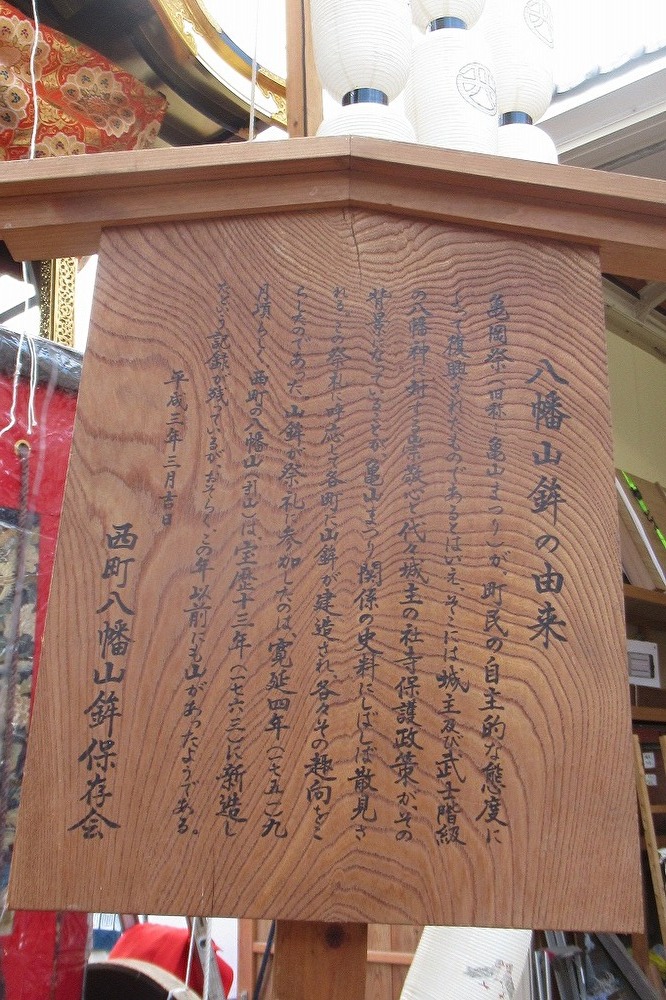 八幡山鉾の由来
亀岡祭(旧称:亀山まつり)が、町民の自主的な態度に
よって復興されたものであるとはいえ、そこには城主及び武士階級
の八幡神に対する崇敬心と代々城主の社寺保護政策が、その
背景になっていることが、亀山まつり関係の史料にしばしば散見さ
れる。この祭礼に呼応して各町に山鉾が建造され、各々その趣向をこ
らしたのであった。山鉾が祭礼に参加したのは、寛延四年(一七五一)九
月頃らしく、西町の八幡山(引山)は、宝歴十三年(一七六三)に新造し
たという記録が残っているがおそらく、この年以前にも山があったようである。
平成三年三月吉日
西町八幡山鉾保存会